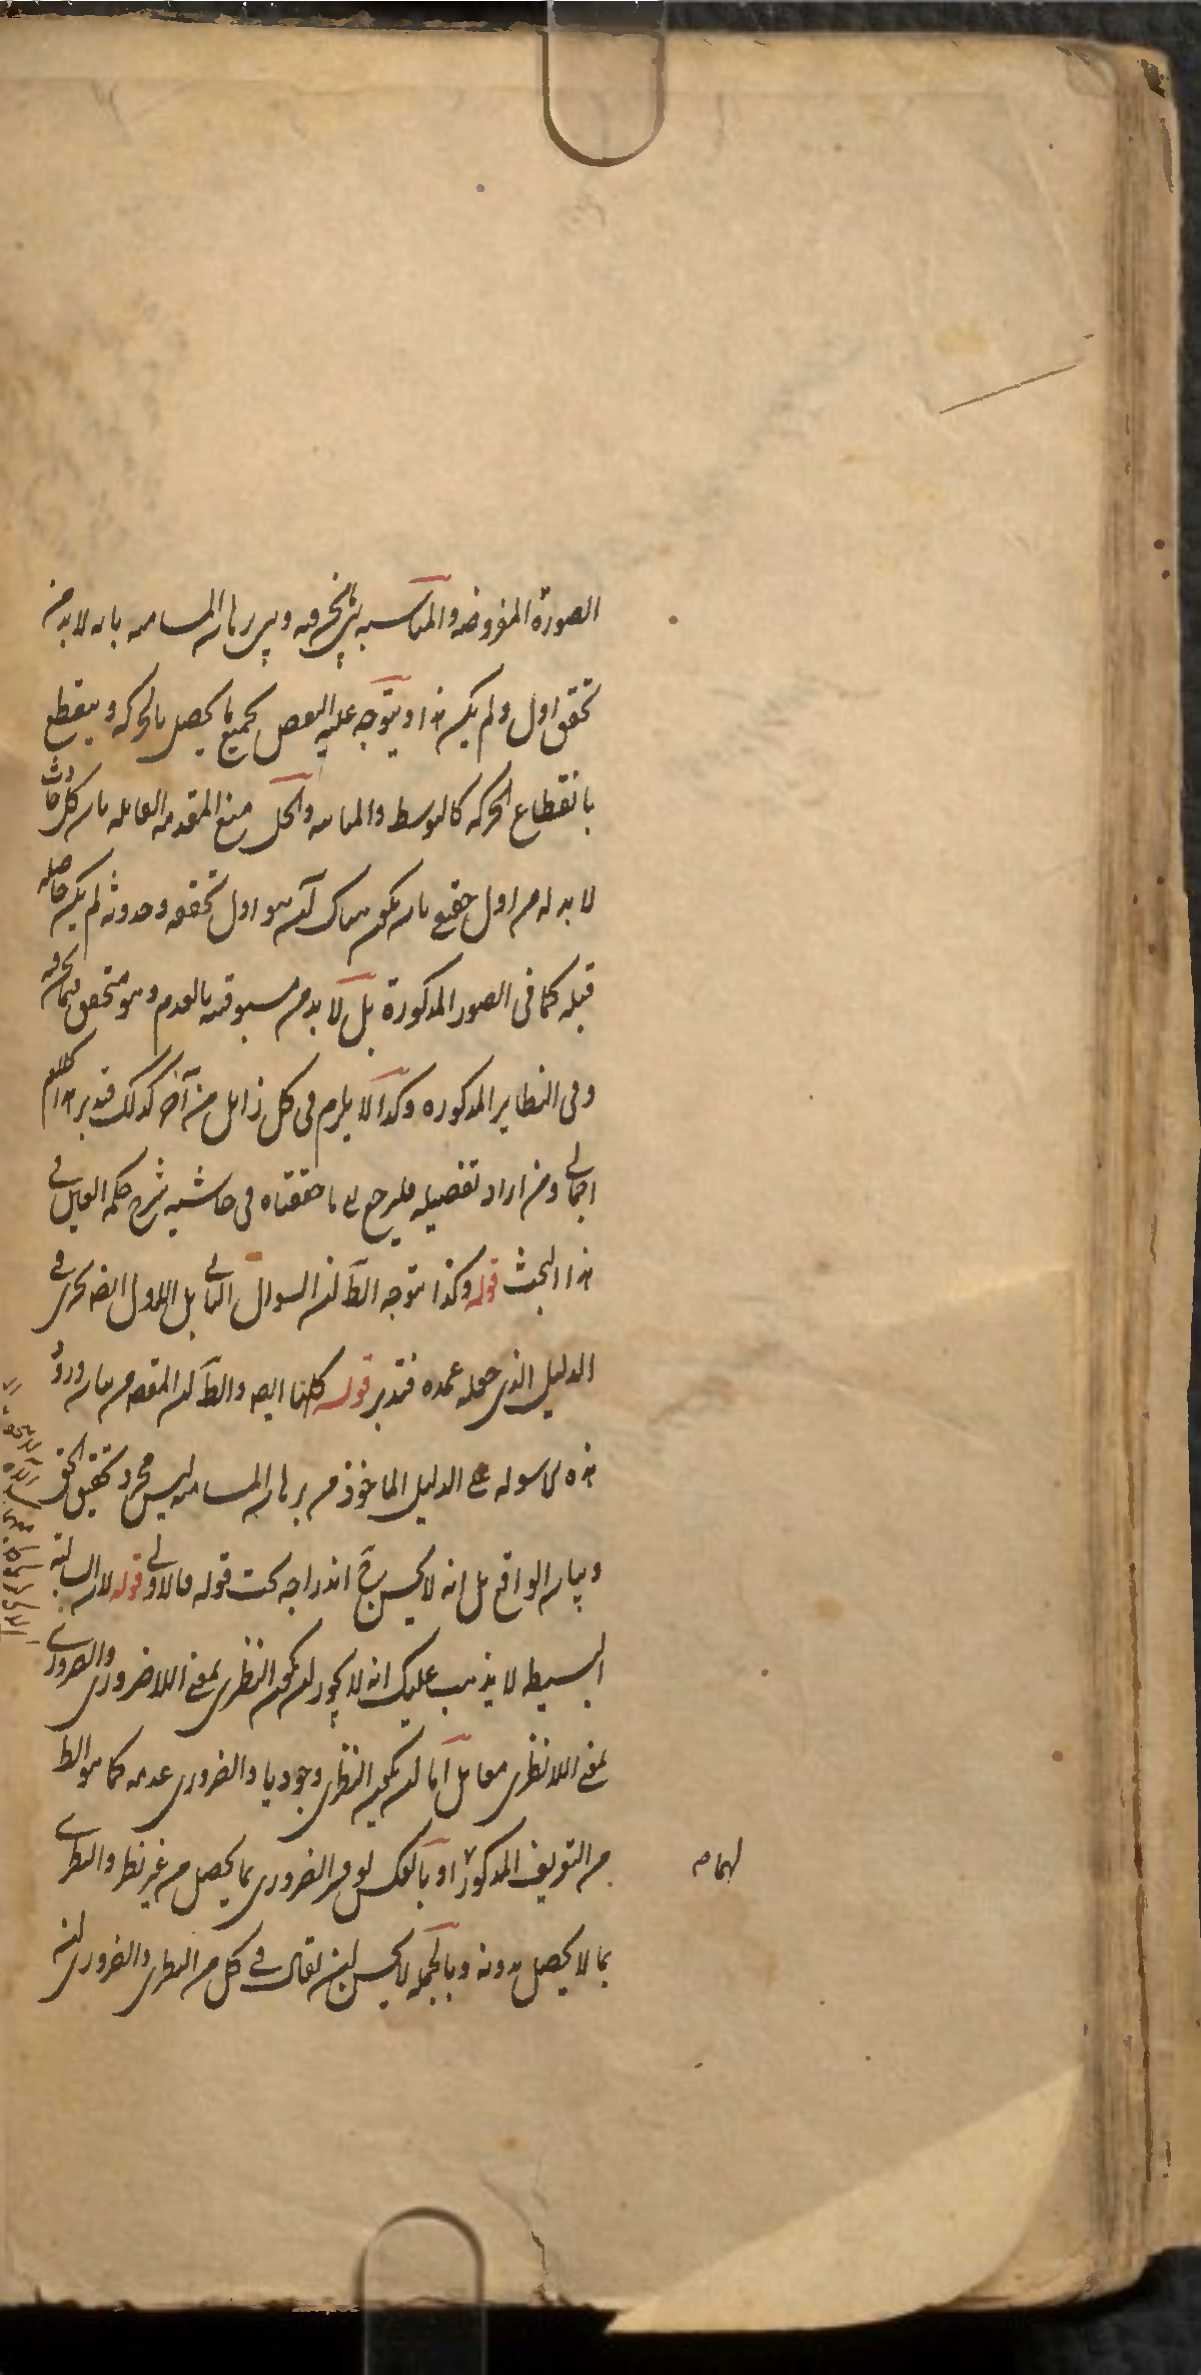 الصورة المفروضه والمناسبه بين وبين برهان المسامته بانه لا بد من
تحقق اول ولم يكن هذا ويتوجه عليه النقض بجميع ما يحصل بالحركه وينقطع
بانقطاع الحركه كالتوسط والمماسه والحل منع المقدمه القائله بان كل حادث
لا بد له من اول حقيقي بان يكون هناك آن هو اول تحققه وحدوثه لم يكن حاصله
قبله كما فى الصور المذكورة بل لا بد من مسبوقيته بالعدم وهو متحقق فيما نحن فيه
وفى النظاير المذكوره وكذا لا يلزم فى كل زائل من آخر كذلك فتدبر هذا كلام
اجمالي ومن اراد تفصيله فليرجع الى ما حققناه فى حاشيه شرح حكمه العين في
هذا البحث قوله وكذا يتوجه الظ ان السؤال الثاني بل الاول ايضا يجرى في
الدليل الذى جعله عمده فتدبر قوله كلاهما ايضا والظ ان المقصود من بيان ورود
هذه الاسوله على الدليل الماخوذ من برهان المسامته ليس مجرد تحقيق الحق
وبيان الواقع بل انه لا يحسن ح اندراجه تحت قوله فالاولى قوله لان السالبة
البسيطه لا يذهب عليك انه لا يجوز ان يكون النظرى بمعنى اللاضرورى والضرورى
بمعنى اللانظرى معا بل اما ان يكون النظرى وجوديا والضرورى عدميا كما هو الظ
من التعريف المذكور او بالعكس لو فسر الضرورى بما يحصل من غير نظر والنظرى
لهما
بما لا يحصل بدونه وبالجمله لا يحسن ان يقال في كل من النظرى والضرورى انه